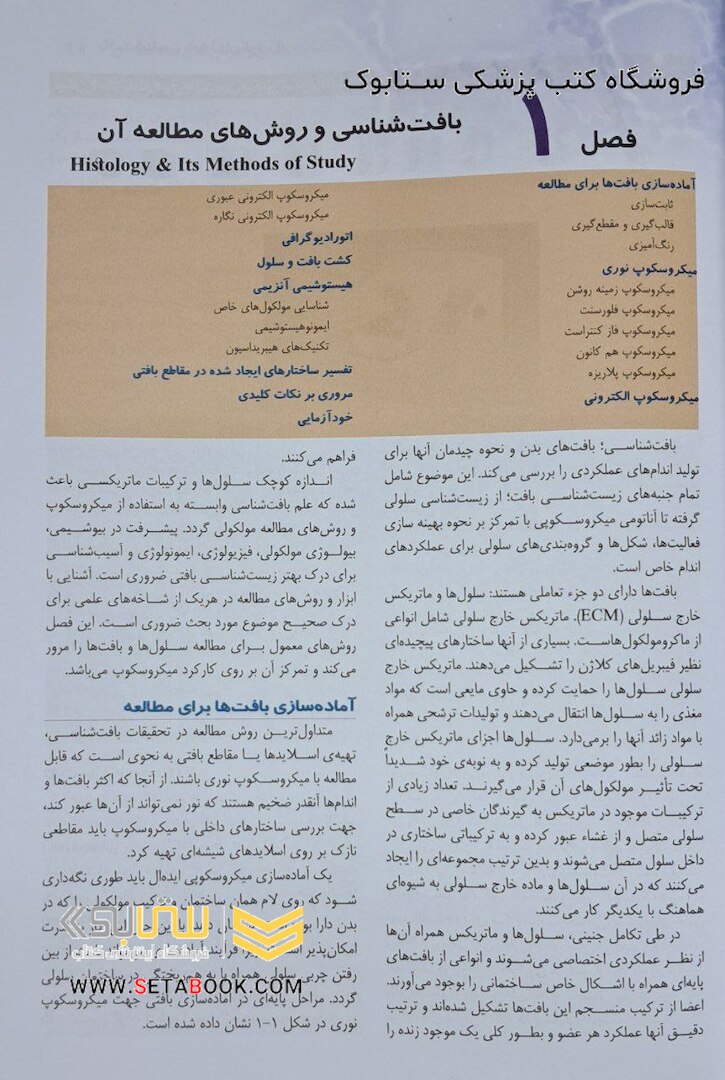 فروشگاه کتب پزشکی ستابوک
فصل ۱
بافت‌شناسی و روش‌های مطالعه آن
Histology & Its Methods of Study
آماده‌سازی بافت‌ها برای مطالعه
ثابت‌سازی
قالب‌گیری و مقطع‌گیری
رنگ‌آمیزی
میکروسکوپ نوری
میکروسکوپ زمینه روشن
میکروسکوپ فلورسنت
میکروسکوپ فاز کنتراست
میکروسکوپ هم کانون
میکروسکوپ پلاریزه
میکروسکوپ الکترونی
میکروسکوپ الکترونی عبوری
میکروسکوپ الکترونی نگاره
اتورادیوگرافی
کشت بافت و سلول
هیستوشیمی آنزیمی
شناسایی مولکول‌های خاص
ایمونوهیستوشیمی
تکنیک‌های هیبریداسیون
تفسیر ساختارهای ایجاد شده در مقاطع بافتی
مروری بر نکات کلیدی
خودآزمایی
بافت‌شناسی؛ بافت‌های بدن و نحوه چیدمان آنها برای
تولید اندام‌های عملکردی را بررسی می‌کند. این موضوع شامل
تمام جنبه‌های زیست‌شناسی بافت؛ از زیست‌شناسی سلولی
گرفته تا آناتومی میکروسکوپی با تمرکز بر نحوه بهینه سازی
فعالیت‌ها، شکل‌ها و گروه‌بندی‌های سلولی برای عملکردهای
اندام خاص است.
بافت‌ها دارای دو جزء تعاملی هستند: سلول‌ها و ماتریکس
خارج سلولی (ECM). ماتریکس خارج سلولی شامل انواعی
از ماکرومولکول‌هاست. بسیاری از آنها ساختارهای پیچیده‌ای
نظیر فیبریل‌های کلاژن را تشکیل می‌دهند. ماتریکس خارج
سلولی سلول‌ها را حمایت کرده و حاوی مایعی است که مواد
مغذی را به سلول‌ها انتقال می‌دهند و تولیدات ترشحی همراه
با مواد زائد آنها را برمی‌دارد. سلول‌ها اجزای ماتریکس خارج
سلولی را بطور موضعی تولید کرده و به نوبه‌ی خود شدیداً
تحت تأثیر مولکول‌های آن قرار می‌گیرند. تعداد زیادی از
ترکیبات موجود در ماتریکس به گیرندگان خاصی در سطح
سلولی متصل و از غشاء عبور کرده و به ترکیباتی ساختاری در
داخل سلول متصل می‌شوند و بدین ترتیب مجموعه‌ای را ایجاد
می‌کنند که در آن سلول‌ها و ماده خارج سلولی به شیوه‌ای
هماهنگ با یکدیگر کار می‌کنند.
در طی تکامل جنینی، سلول‌ها و ماتریکس همراه آن‌ها
از نظر عملکردی اختصاصی می‌شوند و انواعی از بافت‌های
پایه‌ای همراه با اشکال خاص ساختمانی را بوجود می‌آورند.
اعضا از ترکیب منسجم این بافت‌ها تشکیل شده‌اند و ترتیب
دقیق آنها عملکرد هر عضو و بطور کلی یک موجود زنده را
فراهم می‌کنند.
اندازه کوچک سلول‌ها و ترکیبات ماتریکسی باعث
شده که علم بافت‌شناسی وابسته به استفاده از میکروسکوپ
و روش‌های مطالعه مولکولی گردد. پیشرفت در بیوشیمی،
بیولوژی مولکولی، فیزیولوژی، ایمونولوژی و آسیب‌شناسی
برای درک بهتر زیست‌شناسی بافتی ضروری است. آشنایی با
ابزار و روش‌های مطالعه در هریک از شاخه‌های علمی برای
درک صحیح موضوع مورد بحث ضروری است. این فصل
روش‌های معمول برای مطالعه سلول‌ها و بافت‌ها را مرور
می‌کند و تمرکز آن بر روی کارکرد میکروسکوپ می‌باشد.
آماده‌سازی بافت‌ها برای مطالعه
متداول‌ترین روش مطالعه در تحقیقات بافت‌شناسی،
تهیه‌ی اسلایدها یا مقاطع بافتی به نحوی است که قابل
مطالعه با میکروسکوپ نوری باشند. از آنجا که اکثر بافت‌ها و
اندام‌ها آنقدر ضخیم هستند که نور نمی‌تواند از آن‌ها عبور کند،
جهت بررسی ساختارهای داخلی با میکروسکوپ باید مقاطعی
نازک بر روی اسلایدهای شیشه‌ای تهیه کرد.
یک آماده‌سازی میکروسکوپی ایده‌ال باید طوری نگه‌داری
شود که روی لام همان ساختمان و ترکیب مولکولی را که در
بدن دارا
امکان‌پذیر از بین
رفتن چربی سلولی همراه با به هم ریختگی در ساختمان سلولی
گردد. مراحل پایه‌ای در آماده‌سازی بافتی جهت میکروسکوپ
نوری در شکل ۱-۱ نشان داده شده است.
ستابوک
فروشگاه اینترنتی کتاب
WWW.SETABOOK.COM